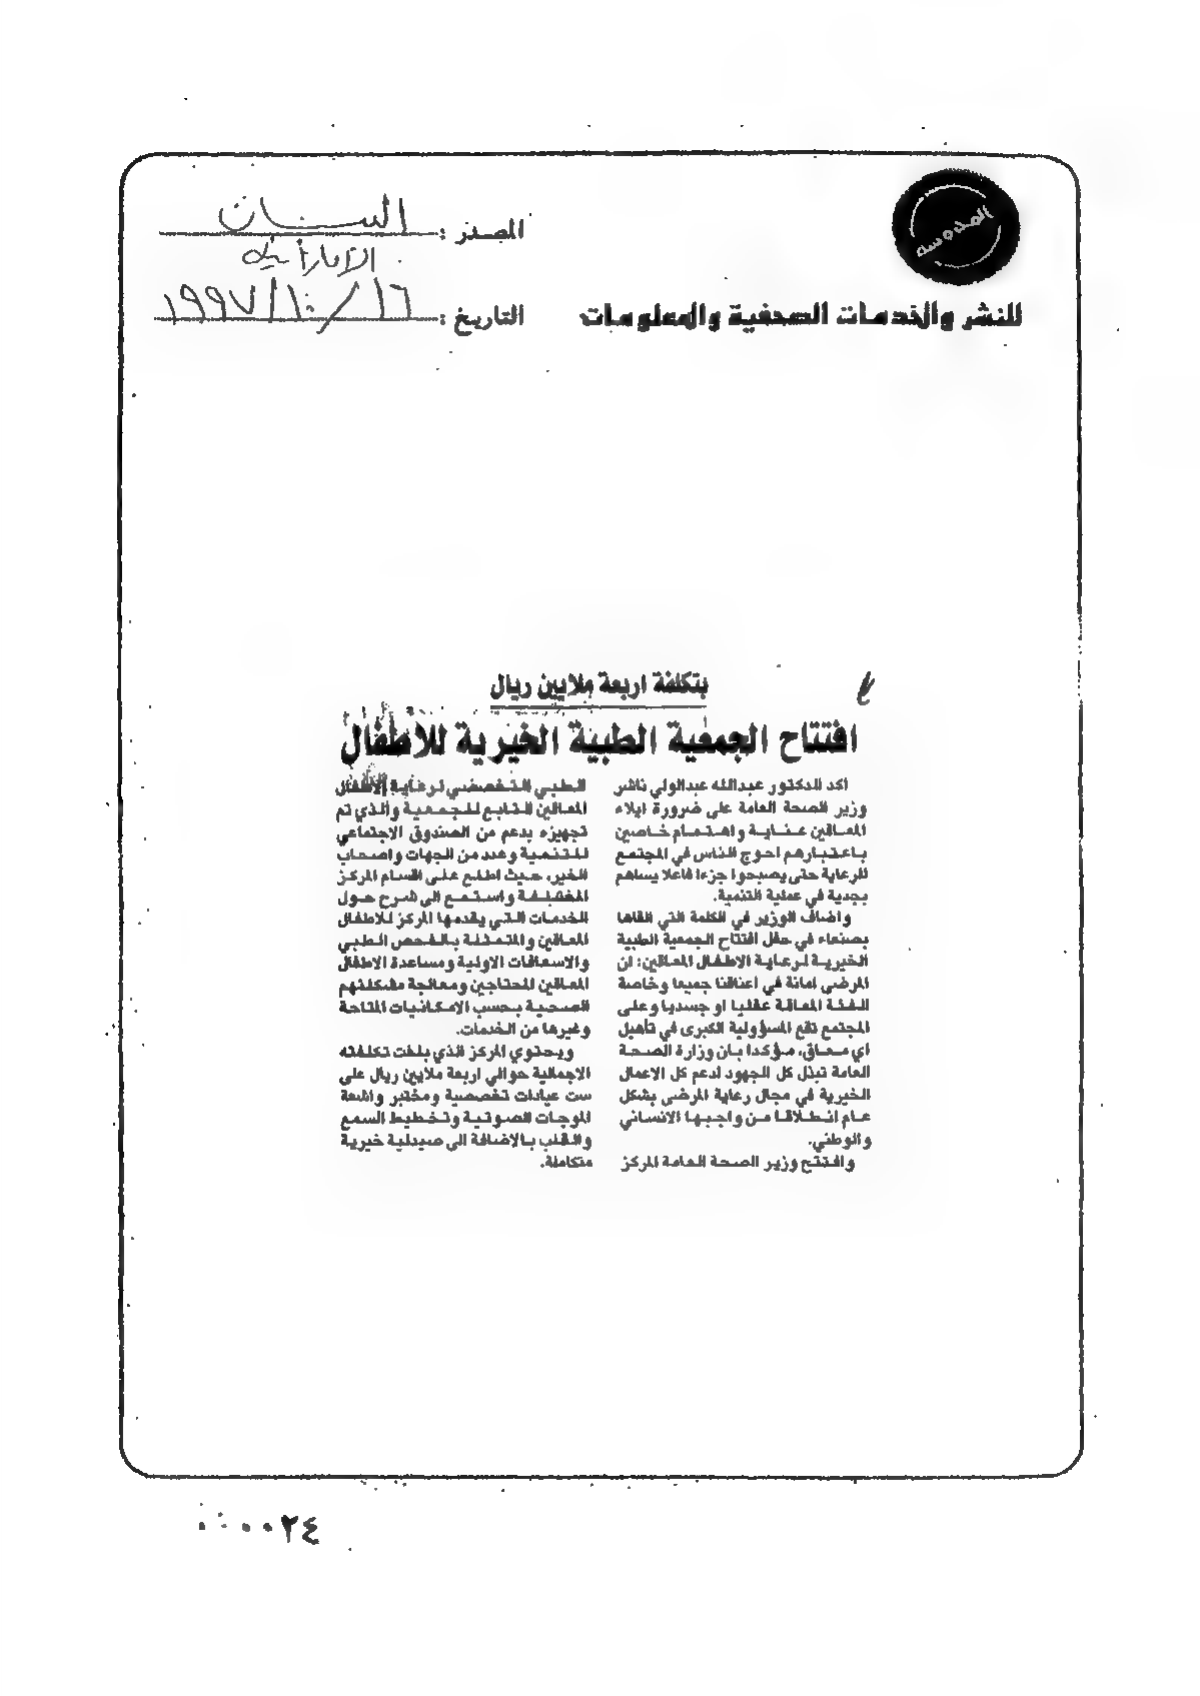 المصدر : البيان
الإماراتية
التاريخ : ١٦/١٠/١٩٩٧
للنشر والخدمات الصحفية والمعلومات
بتكلفة اربعة ملايين ريال
افتتاح الجمعية الطبية الخيرية للأطفال
اكد الدكتور عبدالله عبدالولي ناشر
وزير الصحة العامة على ضرورة ايلاء
المعاقين عناية واهتمام خاصين
باعتبارهم احوج الناس في المجتمع
للرعاية حتى يصبحوا جزءا فاعلا يساهم
بجدية في عملية التنمية.
واضاف الوزير في الكلمة التي القاها
بصنعاء في حفل افتتاح الجمعية الطبية
الخيرية لرعاية الاطفال المعاقين: ان
المرضى امانة في اعناقنا جميعا وخاصة
الفئة المعاقة عقليا او جسديا وعلى
المجتمع تقع المسؤولية الكبرى في تأهيل
اي معاق، مؤكدا بان وزارة الصحة
العامة تبذل كل الجهود لدعم كل الاعمال
الخيرية في مجال رعاية المرضى بشكل
عام انطلاقا من واجبها الانساني
والوطني.
وافتتح وزير الصحة العامة المركز
الطبي التخصصي لرعاية الاطفال
المعاقين التابع للجمعية والذي تم
تجهيزه بدعم من الصندوق الاجتماعي
للتنمية وعدد من الجهات واصحاب
الخير، حيث اطلع على اقسام المركز
المختلفة واستمع الى شرح حول
الخدمات التي يقدمها المركز للاطفال
المعاقين والمتمثلة بالفحص الطبي
والاسعافات الاولية ومساعدة الاطفال
المعاقين المحتاجين ومعالجة مشكلتهم
الصحية بحسب الامكانيات المتاحة
وغيرها من الخدمات.
ويحتوي المركز الذي بلغت تكلفته
الاجمالية حوالي اربعة ملايين ريال على
ست عيادات تخصصية ومختبر واشعة
الموجات الصوتية وتخطيط السمع
والقلب بالاضافة الى صيدلية خيرية
متكاملة.